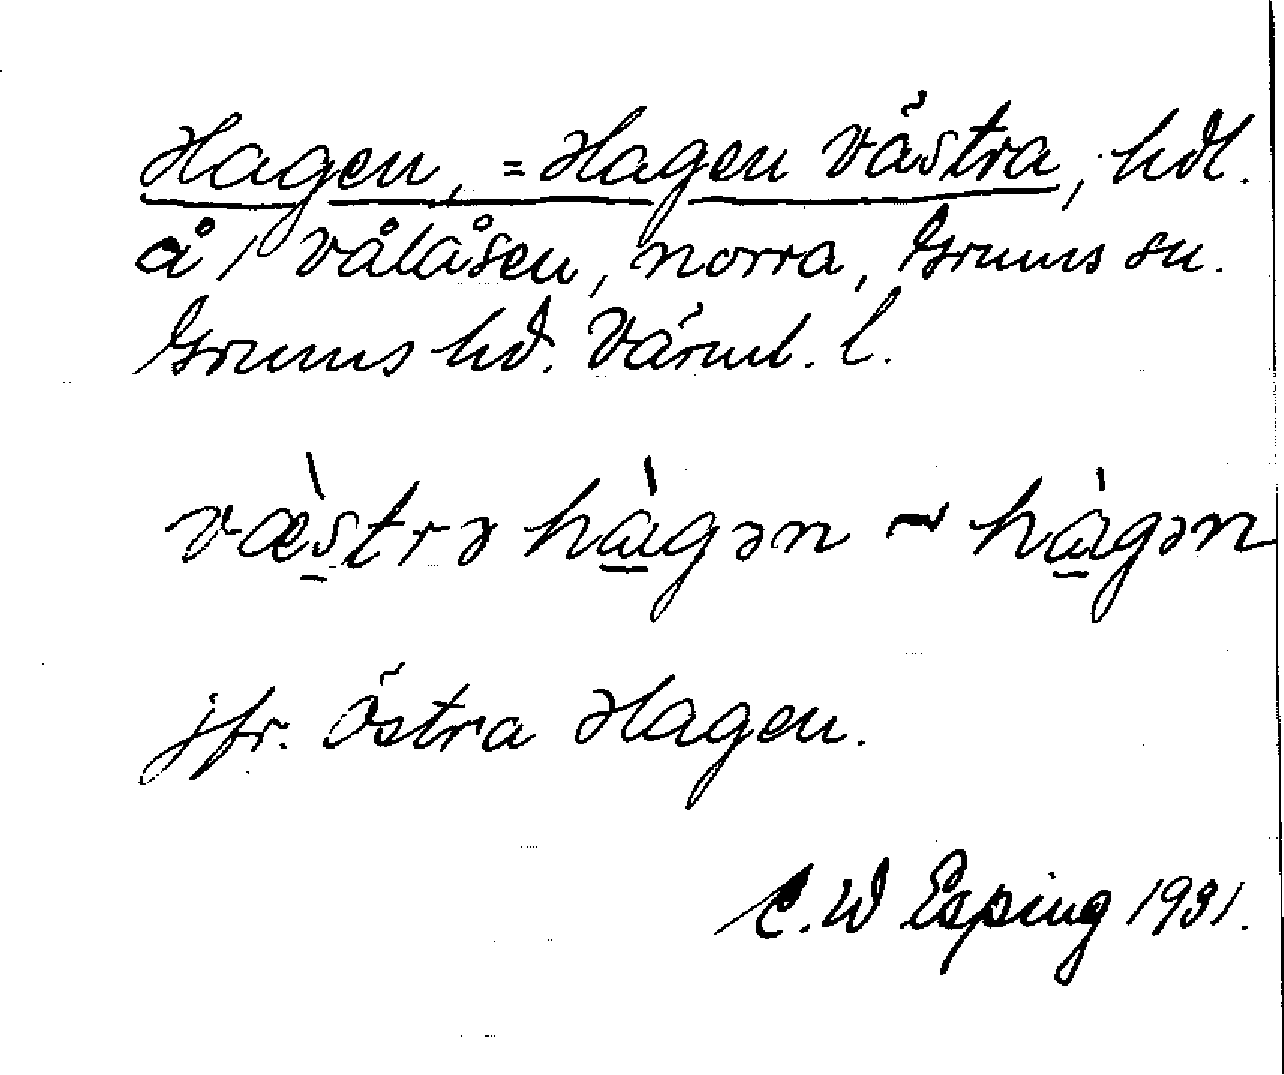 Hagen, = Hagen västra, hdl.
å 1 Vålåsen, norra, Grums sn.
Grums hd. Värml. l.
væ̀strə hàgən ~ hàgən
jfr. Östra Hagen.
C. W Esping 1931.